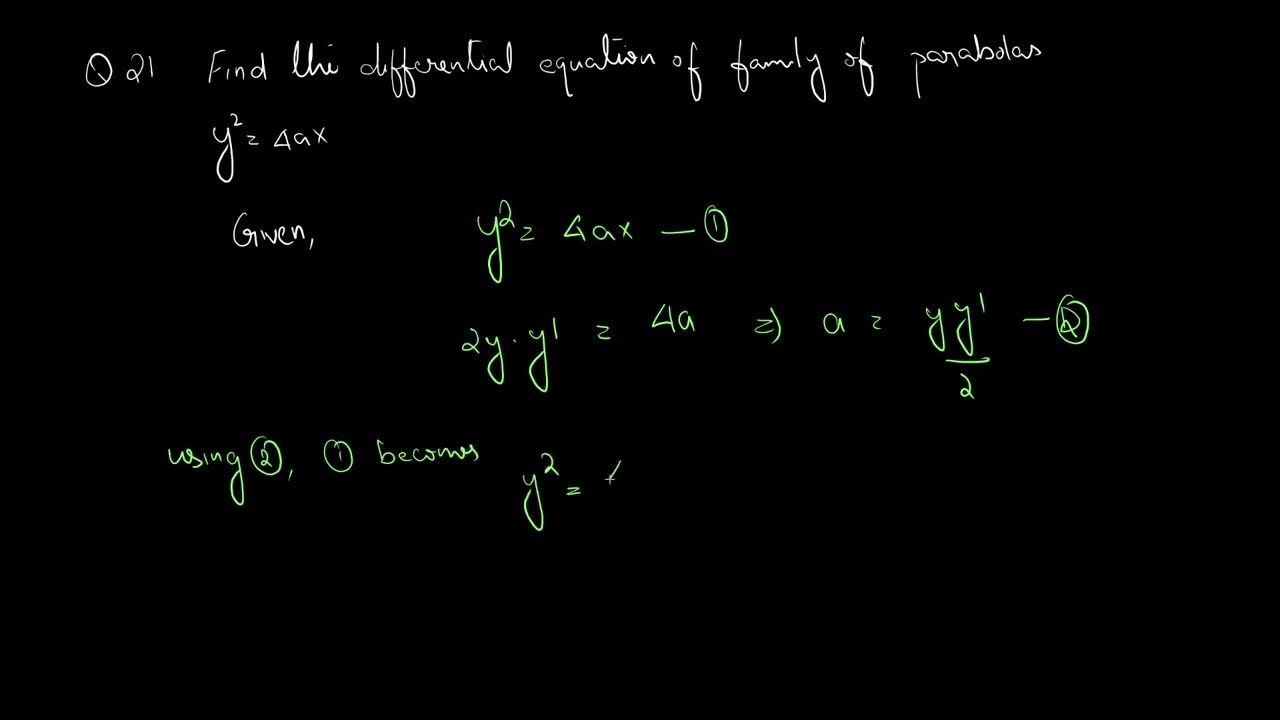 Q 21 Find the differential equation of family of parabolas
y² = 4ax
Given, y² = 4ax — ①
2y · y' = 4a ⇒ a = yy'/2 — ②
using ②, ① becomes y² =